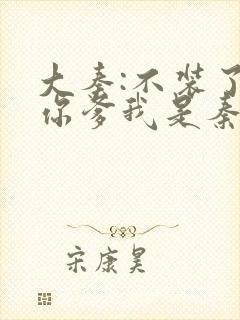 大秦:不装了
你爹我是秦
宋康昊